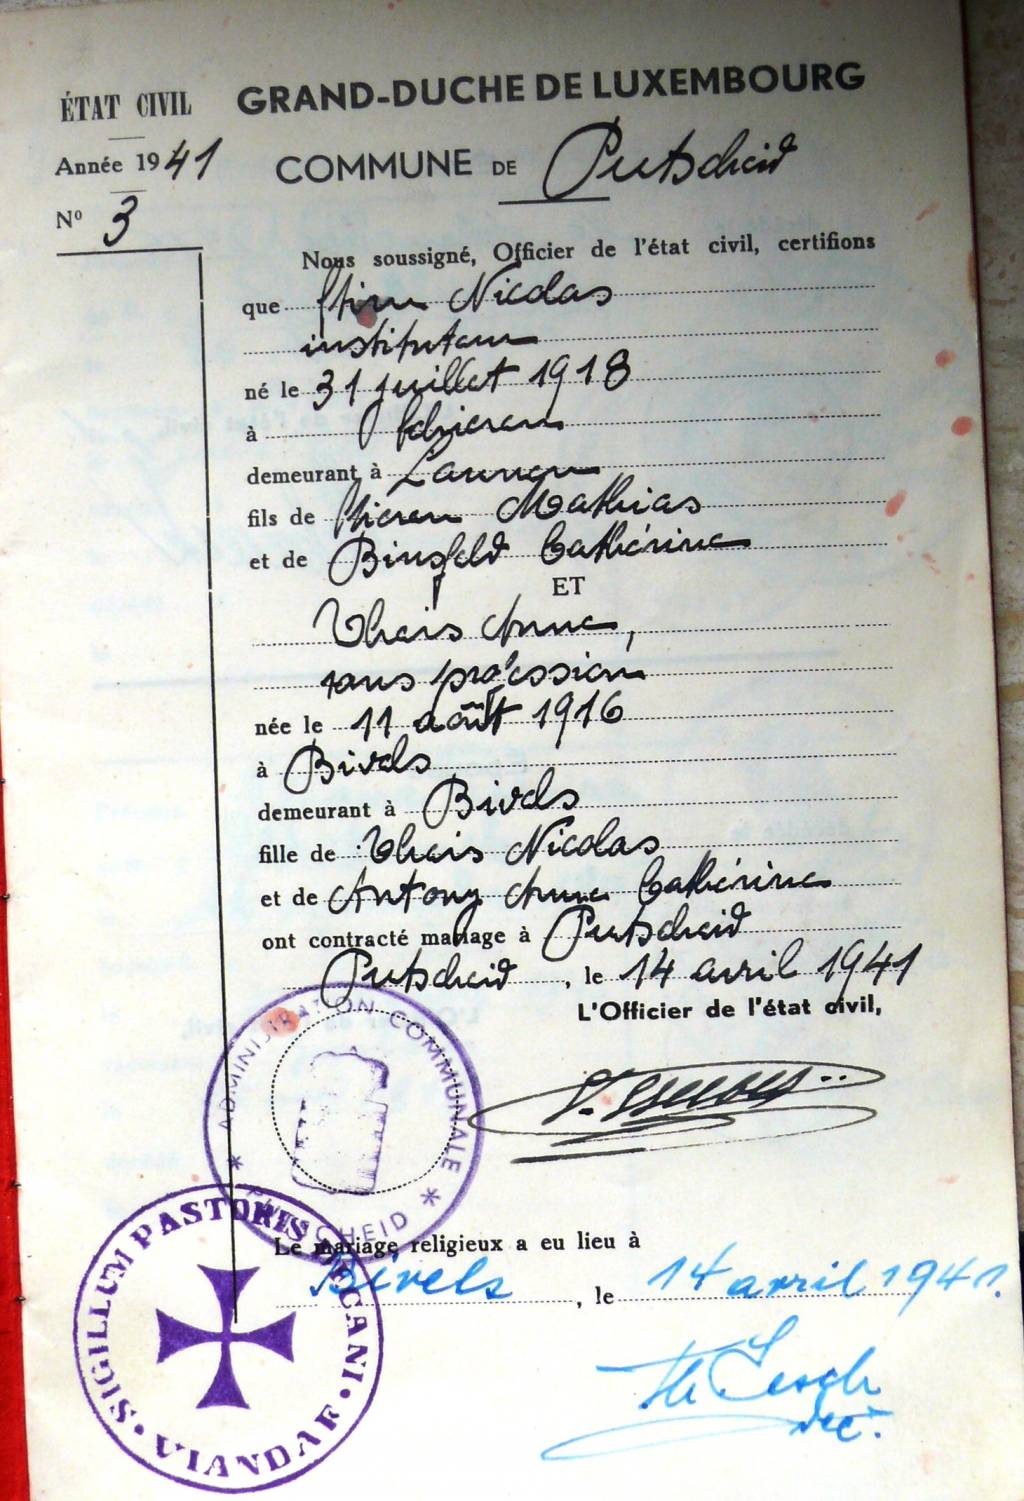 ÉTAT CIVIL GRAND-DUCHE DE LUXEMBOURG
Année 1941 COMMUNE DE Putscheid
Nº 3
Nous soussigné, Officier de l'état civil, certifions
que Nicolas
instituteur
né le 31 juillet 1918
à
demeurant à
fils de Mathias
et de Binsfeld Cathérine
ET
Theis Anne,
sans profession
née le 11 août 1916
à Bivels
demeurant à Bivels
fille de Theis Nicolas
et de Antony Anne Cathérine
ont contracté mariage à Putscheid
Putscheid, le 14 avril 1941
L'Officier de l'état civil,
ADMINISTRATION COMMUNALE
* PUTSCHEID *
Le mariage religieux a eu lieu à
Bivels, le 14 avril 1941.
SIGILLUM PASTORIS DECANI · VIANDAE ·